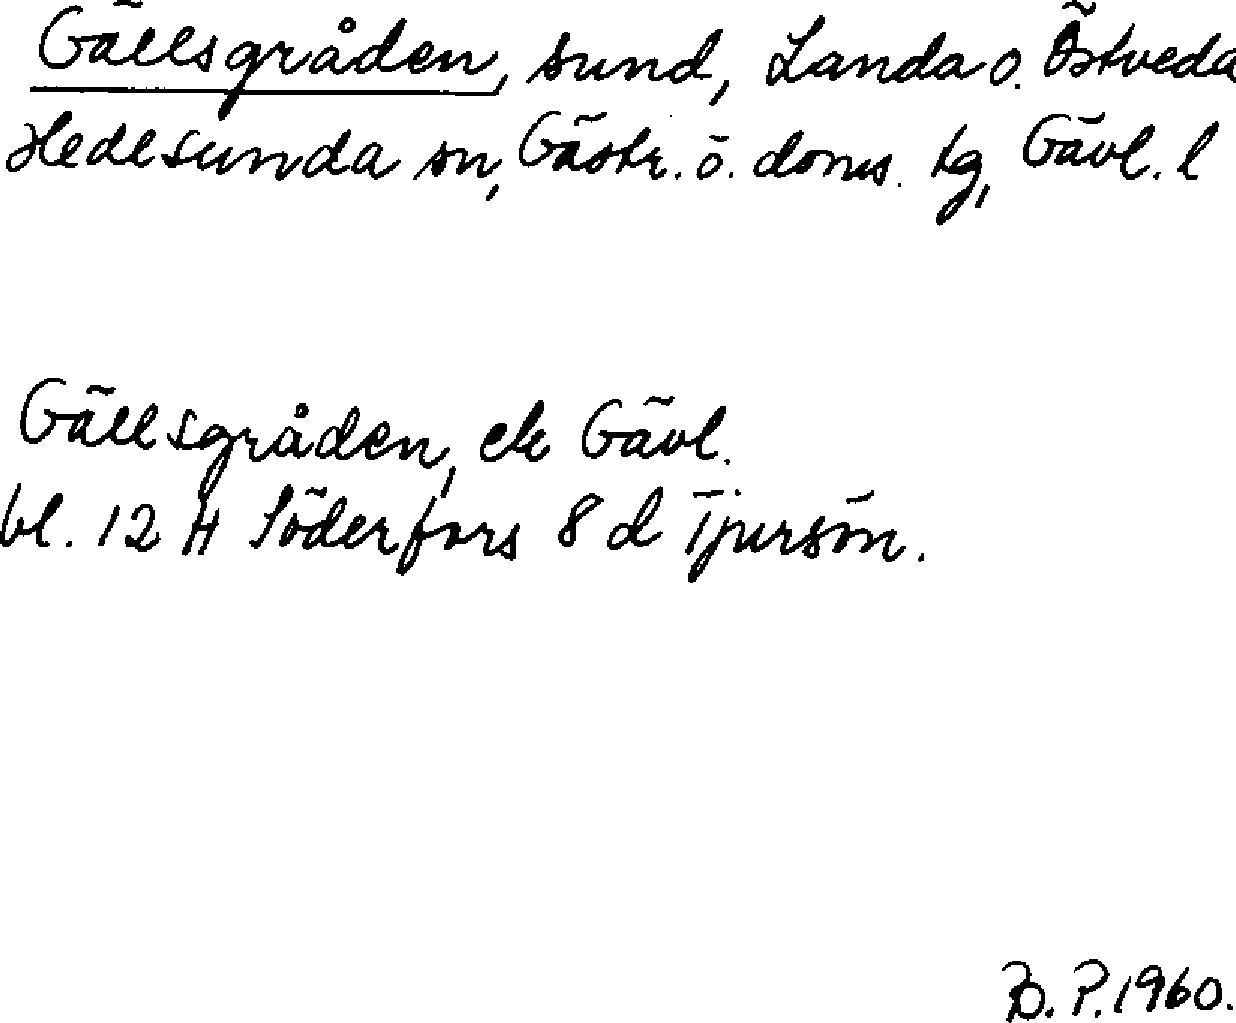 Gällsgråden, sund, Landa o. Östveda
Hedesunda sn, Gästr. ö. doms. tg, Gävl. l
Gällsgråden, ek Gävl.
bl. 12 H Söderfors 8 d Tjursön.
B. P. 1960.